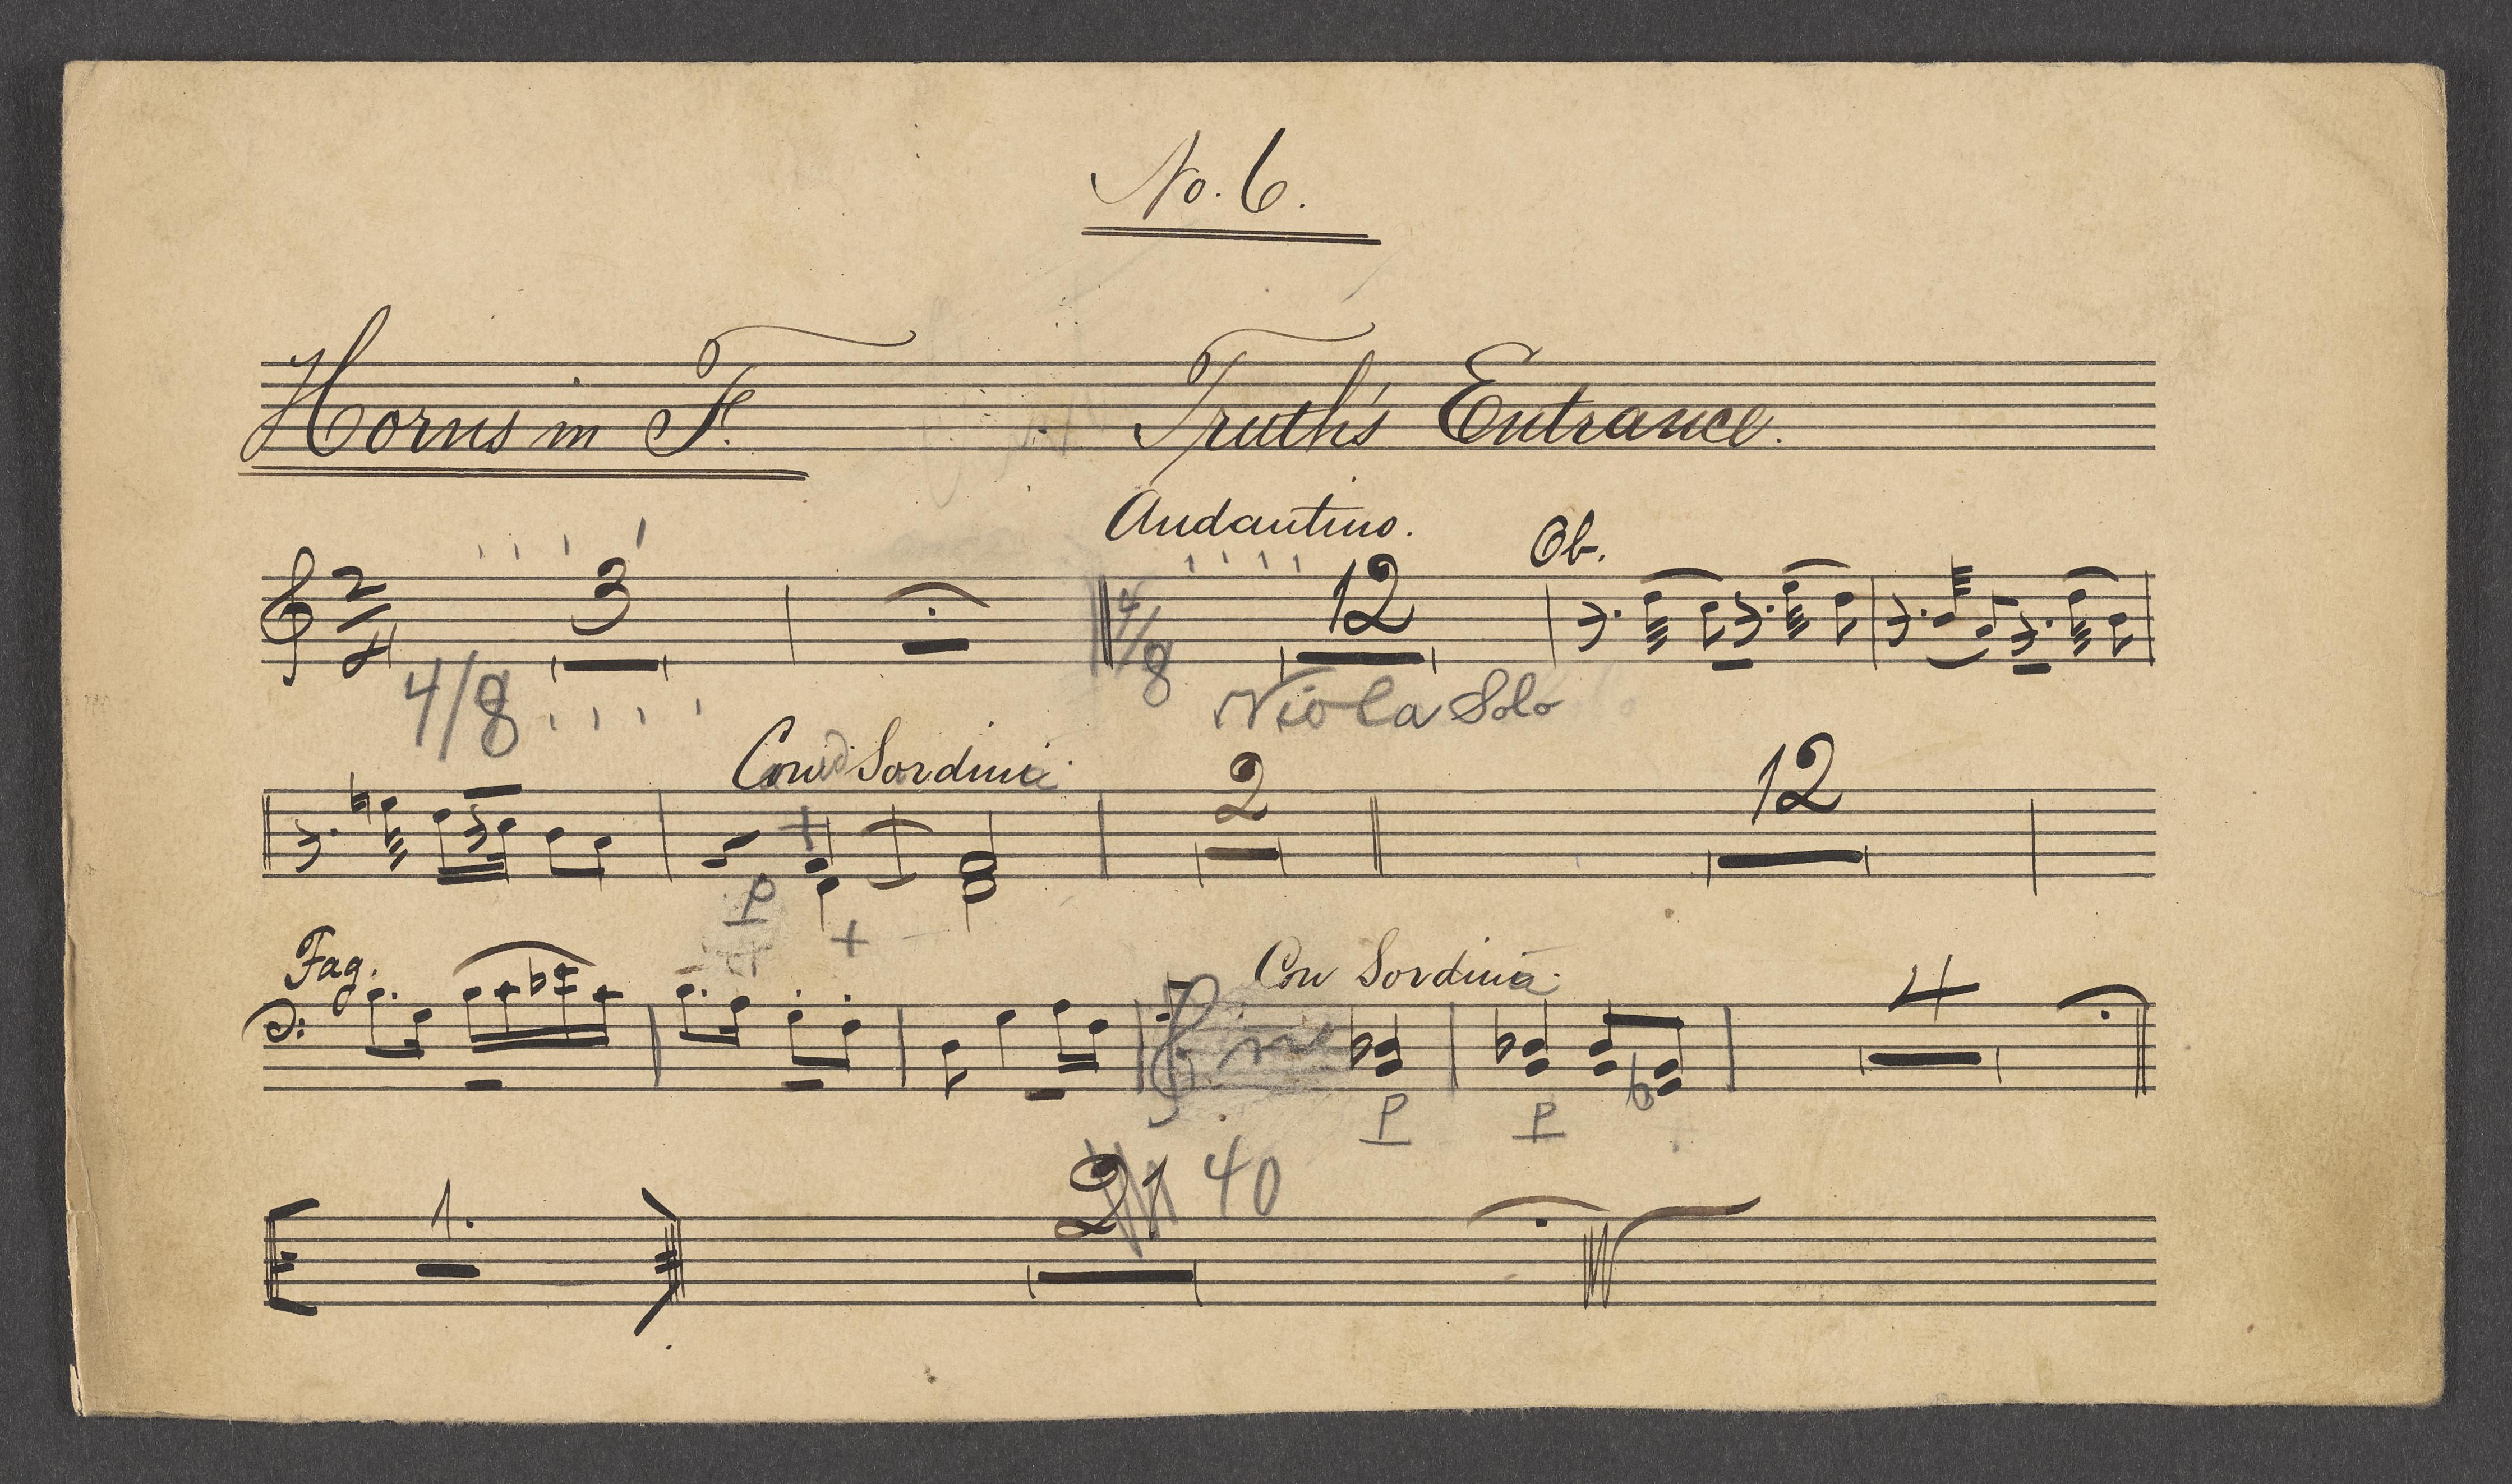 No. 6.
Horns in F. Truth's Entrance.
Andantino.
Ob.
2/4 3 4/8 12
4/8 Viola Solo
Con Sordini
2 12
p
Fag. Con Sordina 4
p p
1. 21 40